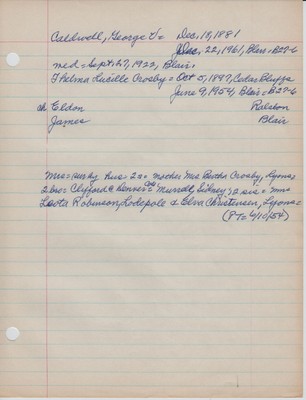 Caldwell, George V = Dec, 15, 1881
Dec, 22, 1961, Blair = B27-6
med = Sept. 27, 1922, Blair,
Thelma Lucille Crosby = Oct 5, 1897, Cedar Bluffs
June 9, 1954, Blair = B27-6
ch Eldon Ralston
James Blair
Mrs = survby hus = 2 s = mother Mrs Bertha Crosby, Lyons =
2 bros = Clifford & Sidney; 2 sis = Mrs
Leota Robinson, Lodepole & Elva Christensen, Lyons =
(PT = 6/10/54)